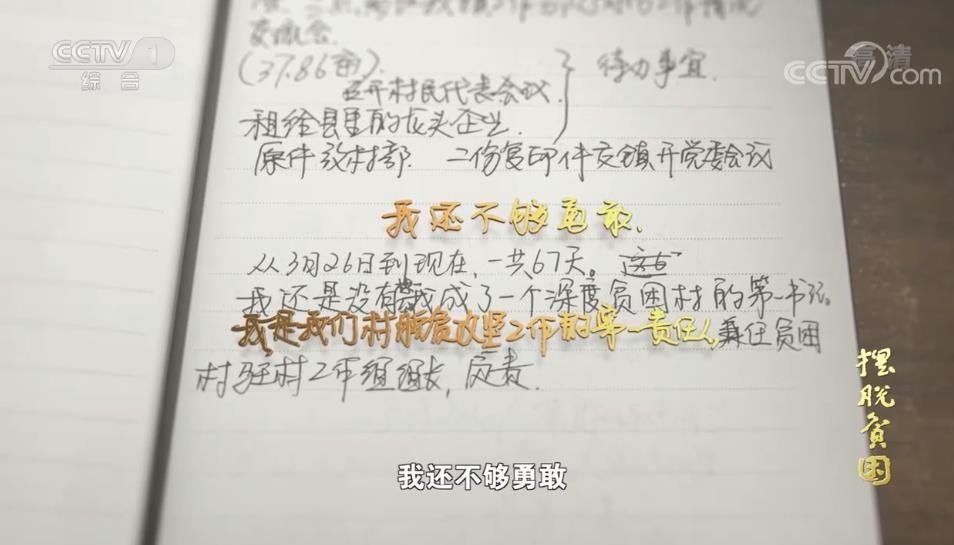 CCTV 1
综合
高清
CCTV.com
交流会.
(37.86亩).
召开村民代表会议.
待办事宜.
租给县里的龙头企业.
原件放村部. 二份复印件交镇开党委会议
我还不够勇敢.
从3月26日到现在,一共67天。
我还是没有 成了一个深度贫困村的第一书记.
我是我们村脱贫攻坚工作的第一责任人,兼任贫困
村驻村工作组组长,
摆脱贫困
我还不够勇敢